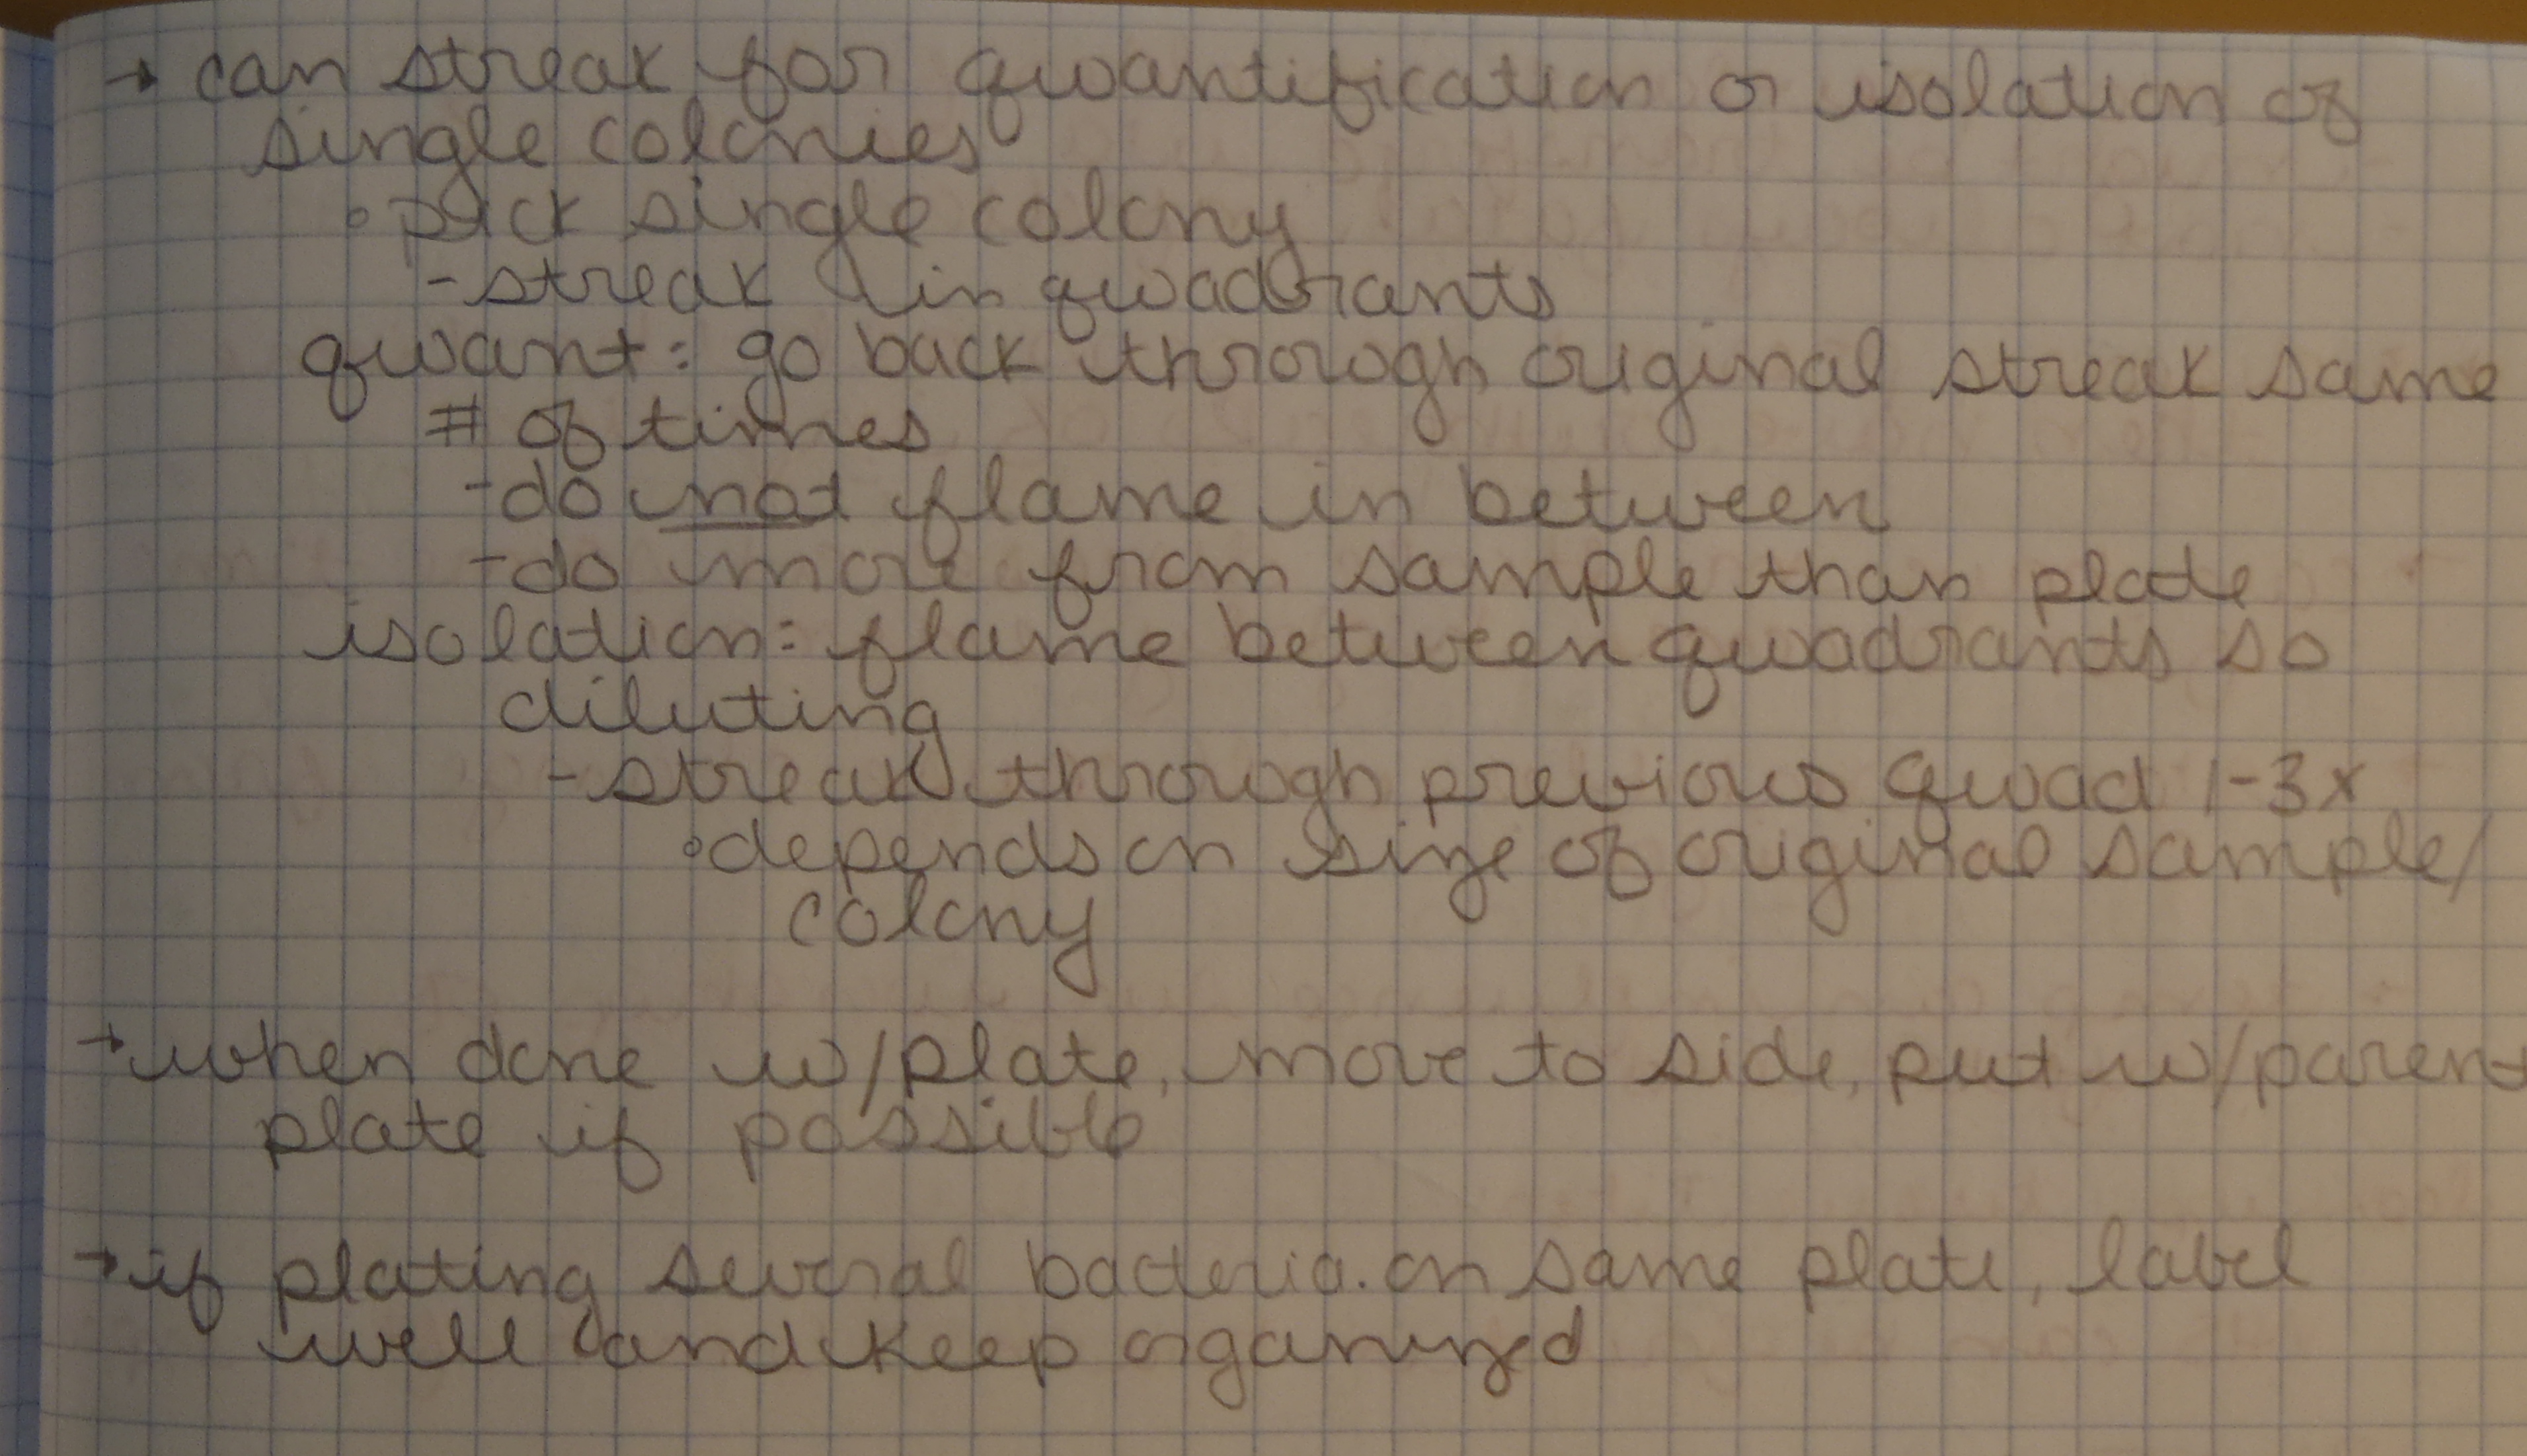 → can streak for quantification or isolation of
single colonies
◦ pick single colony
- streak in quadrants
quant: go back through original streak same
# of times
- do not flame in between
- do more from sample than plate
isolation: flame between quadrants so
diluting
- streak through previous quad 1-3x
◦ depends on size of original sample/
colony
→ when done w/plate, move to side, put w/parent
plate if possible
→ if plating several bacteria on same plate, label
well and keep organized